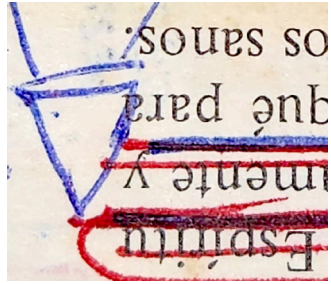 Espíritu
mente y
qué para
os sanos.